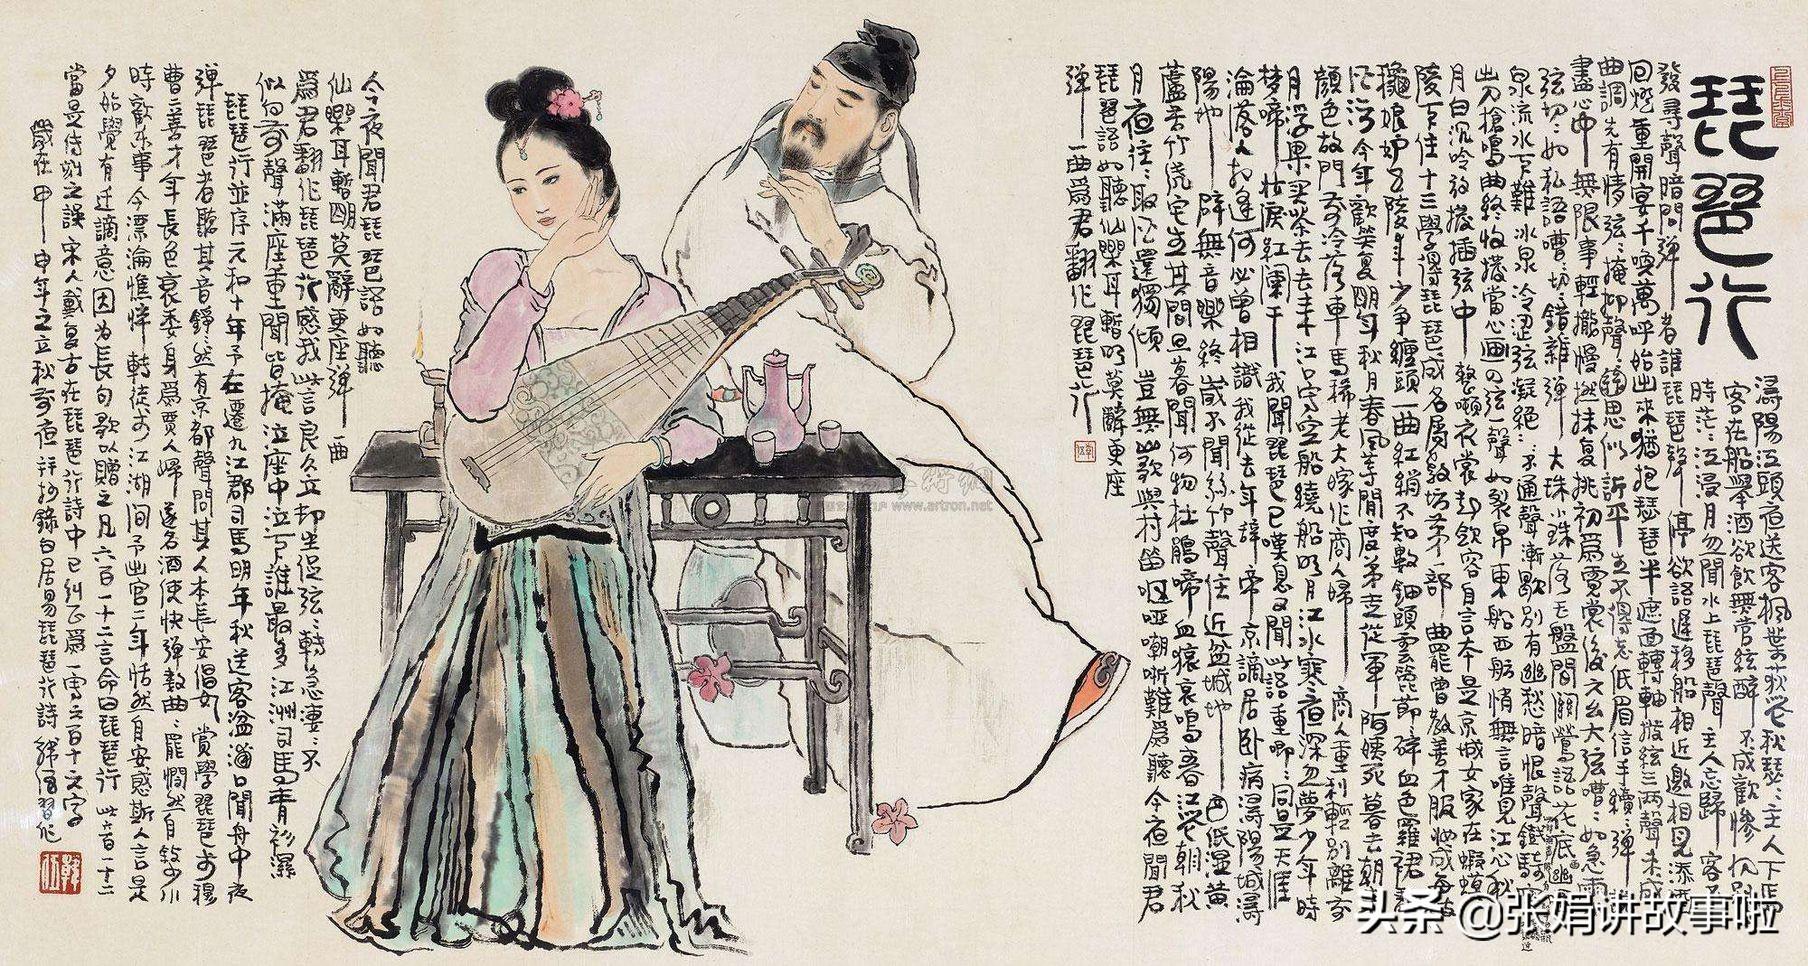 琵琶行
潯陽江頭夜送客楓葉荻花秋瑟瑟主人下馬
客在船舉酒欲飲無管絃醉不成歡慘將別
時茫茫江浸月忽聞水上琵琶聲主人忘歸客不
發尋聲暗問彈者誰琵琶聲停欲語遲移船相近邀相見添酒
回燈重開宴千喚萬呼始出來猶抱琵琶半遮面轉軸撥絃三兩聲未成
曲調先有情弦弦掩抑聲聲思似訴平生不得志低眉信手續續彈
盡心中無限事輕攏慢撚抹復挑初爲霓裳後六幺大弦嘈嘈如急雨
弦切切如私語嘈嘈切切錯雜彈大珠小珠落玉盤間關鶯語花底
泉流水下難冰泉冷澀弦凝絕不通聲漸歇別有幽愁暗恨聲鐵騎
出刀槍鳴曲終收撥當心画四弦聲如裂帛東船西舫悄無言唯見江心秋
月白沉吟放撥插弦中整頓衣裳起歛容自言本是京城女家在蝦蟆
陵下住十三學得琵琶成名屬教坊第一部曲罷曾教善才服妝成每被
秋娘妒五陵年少爭纏頭一曲紅綃不知數鈿頭雲篦節碎血色羅裙
酒污今年歡笑復明年秋月春風等閒度弟走從軍阿姨死暮去朝
顏色故門前冷落車馬稀老大嫁作商人婦商人重利輕別離前
月浮梁買茶去去來江口守空船繞船明月江水寒夜深忽夢少年時
夢啼妝淚紅闌干我聞琵琶已嘆息又聞此語重唧唧同是天涯
淪落人相逢何必曾相識我從去年辭帝京謫居臥病潯陽城潯
陽地僻無音樂終歲不聞絲竹聲住近湓城地低濕黃
蘆苦竹繞宅生其間旦暮聞何物杜鵑啼血猿哀鳴春江花朝秋
月夜往往取酒還獨傾豈無山歌與村笛嘔啞嘲哳難爲聽今夜聞君
琵琶語如聽仙樂耳暫明莫辭更座
彈一曲爲君翻作琵琶行
今夜聞君琵琶語如聽
仙樂耳暫明莫辭更座彈一曲
爲君翻作琵琶行感我此言良久立却坐促弦弦轉急凄凄不
似向前聲滿座重聞皆掩泣座中泣下誰最多江州司馬青衫濕
琵琶行並序元和十年予左遷九江郡司馬明年秋送客湓浦口聞舟中夜
彈琵琶者聽其音錚錚然有京都聲問其人本長安倡女嘗學琵琶於穆
曹二善才年長色衰委身爲賈人婦遂名酒使快彈數曲曲罷憫然自敘少小
時歡樂事今漂淪憔悴轉徙於江湖間予出官二年恬然自安感斯人言是
夕始覺有遷謫意因為長句歌以贈之凡六百一十二言命曰琵琶行
當是傳刻之誤宋人戴復古在琵琶行詩中已糾正爲一寫六百十六字
歲在甲申年之立秋前夜并抄錄白居易琵琶行詩
www.artron.net
头条 @张娟讲故事啦